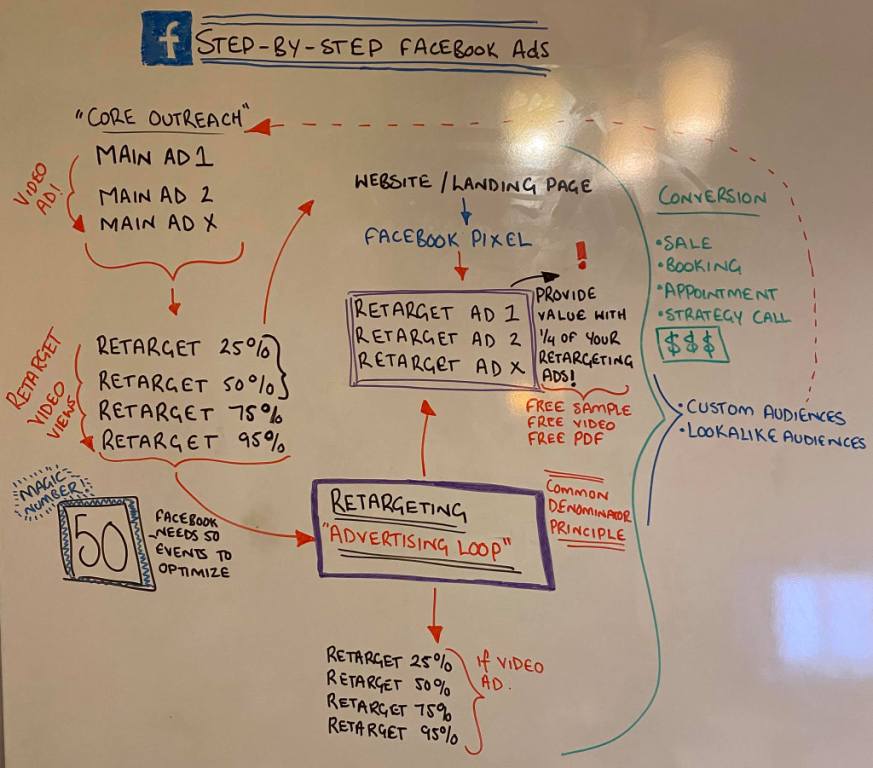 f
STEP-BY-STEP FACEBOOK Ads
"CORE OUTREACH"
VIDEO
AD!
MAIN AD 1
MAIN AD 2
MAIN AD X
RETARGET
VIDEO
VIEWS
RETARGET 25%
RETARGET 50%
RETARGET 75%
RETARGET 95%
MAGIC
NUMBER!
50
FACEBOOK
NEEDS 50
EVENTS TO
OPTIMIZE
WEBSITE / LANDING PAGE
FACEBOOK PIXEL
RETARGET AD 1
RETARGET AD 2
RETARGET AD X
!
PROVIDE
VALUE WITH
1/4 OF YOUR
RETARGETING
ADS!
FREE SAMPLE
FREE VIDEO
FREE PDF
RETARGETING
"ADVERTISING LOOP"
COMMON
DENOMINATOR
PRINCIPLE
RETARGET 25%
RETARGET 50%
RETARGET 75%
RETARGET 95%
If VIDEO
AD.
CONVERSION
•SALE
•BOOKING
•APPOINTMENT
•STRATEGY CALL
$$$
•CUSTOM AUDIENCES
•LOOKALIKE AUDIENCES